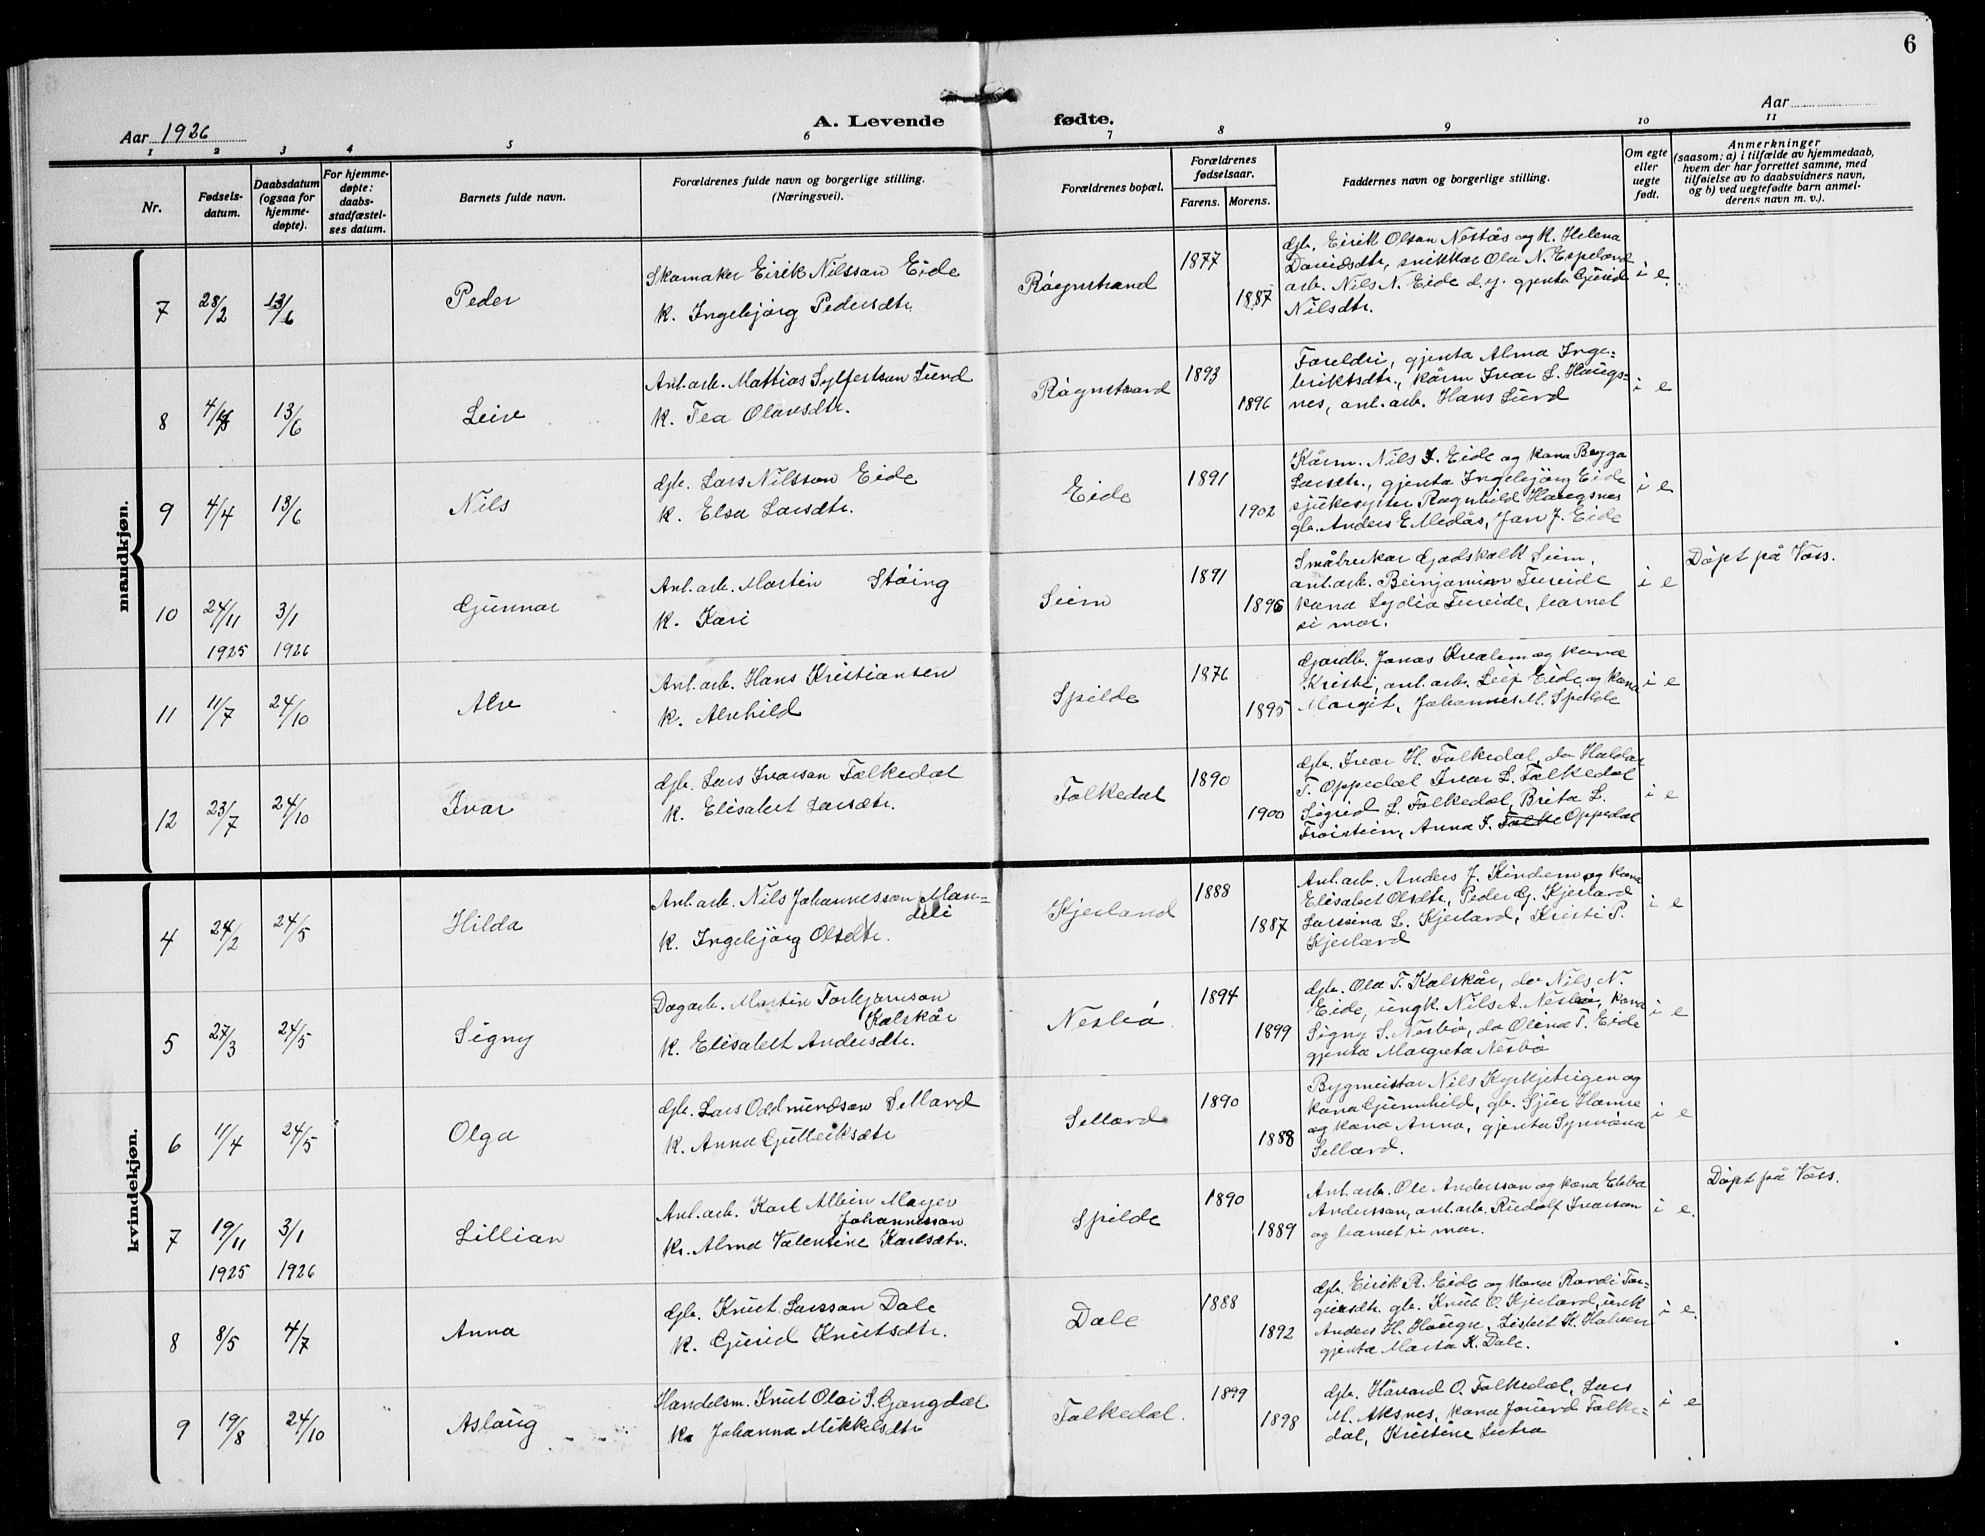 6
Aar 1926
A. Levende fødte.
Aar
1 2 3 4 5 6 7 8 9 10 11
Nr.
Fødsels-
datum.
Daabsdatum
(ogsaa for
hjemme-
døpte).
For hjemme-
døpte:
daabs-
stadfæstel-
ses datum.
Barnets fulde navn.
Forældrenes fulde navn og borgerlige stilling.
(Næringsvei).
Forældrenes bopæl.
Forældrenes
fødselsaar.
Farens. Morens.
Faddernes navn og borgerlige stilling.
Om egte
eller
uegte
født.
Anmerkninger
(saasom: a) i tilfælde av hjemmedaab,
hvem der har forrettet samme, med
tilføielse av to daabsvidners navn,
og b) ved uegtefødte barn anmel-
derens navn m. v.).
mandkjøn.
7 28/2 13/6 Peder
Skomaker Eirik Nilsson Eide
k. Ingebjørg Pedersdtr.
Røgnstrand
1877
1887
gb. Eirik Olson Nestås og k. Helena
Davidsdtr, snikkar Ola N. Espeland
arb. Nils N. Eide d.y. gjenta Gurid
Nilsdtr.
i e.
8 4/ 13/6 Leiv
Anl.arb. Mattias Sylfestsen Lund
k. Tea Olavsdtr.
Røgnstrand
1893
1896
Foreldri, gjenta Alma Inge-
briktsdtr., kårm Ivar L. Haugs-
nes, anl.arb. Hans Lund
i e
9 4/4 13/6 Nils
gb. Lars Nilsson Eide
k. Elsa Larsdtr.
Eide
1891
1902
Kårm. Nils I. Eide og kona Brygga
Larsdtr., gjenta Ingebjørg Eide
sjukesyster Ragnhild Haugsnes
gb. Anders E. Medås, Jon J. Eide
i e
10 24/11 1925 3/1 1926 Gunnar
Anl.arb. Martin Støing
k. Kari
Seim
1891
1896
Småbrukar Godskalk Seim,
anl.arb. Beinjamin Tureide
kona Lydia Tureide, barnet
si mor.
i e
Döpt på Voss.
11 11/7 24/10 Alv
Anl.arb. Hans Kristiansen
k. Alvhild
Spilde
1876
1895
Gardb. Jonas Kvalem og kona
Kristi, anl.arb. Leif Eide og kona
Margit, Johannes M. Spilde
i e
12 23/7 24/10 Ivar
gb. Lars Ivarson Folkedal
k. Elisabet Larsdtr.
Folkedal
1890
1900
gb. Ivar H. Folkedal, do Haldor
T. Oppedal Ivar L. Folkedal
Sigrid L. Folkedal, Brita L.
Trøistein, Anna I. Folke Oppedal
i e
kvindekjøn.
4 24/2 24/5 Hilda
Anl.arb. Nils Johannesson Man-
deli
k. Ingebjørg Olsdtr.
Kjerland
1888
1887
Anl.arb. Anders J. Kindem og kona
Elisabet Olsdtr., Peder G. Kjerland
Larsina L. Kjerland, Kristi P.
Kjerland
i e
5 27/3 24/5 Signy
Dagarb. Martin Torbjørnson
Kolskår
k. Elisabet Andersdtr.
Nesbø
1894
1899
gb. Ola T. Kolskår, do Nils N.
Eide, ungk. Nils A. Nesbø, kona
Signy S. Nesbø, do Olina T. Eide
gjenta Margreta Nesbø
i e
6 11/4 24/5 Olga
gb. Lars Oddmundson Selland
k. Anna Gutteiksdtr
Selland
1890
1888
Bygmeistar Nils Kyrkjeteigen og
kona Gunnhild, gb. Sjur Hamre
og kona Anna, gjenta Synnøna
Selland.
i e
7 19/11 1925 3/1 1926 Lillian
Anl.arb. Karl Albin Mayer
Johannesson
k. Alma Valentine Karlsdtr.
Spilde
1890
1889
Anl.arb. Ole Andersson og kona Ebba
Andersson, anl.arb. Rudolf Ivarson
og barnet si mor.
i e.
Döpt på Voss.
8 8/5 4/7 Anna
gb. Knut Larsson Dale
k. Gurid Knutsdtr.
Dale
1888
1892
gb. Eirik R. Eide og kona Randi Tor-
geirsdtr. gb. Knut O. Kjerland, unk
Anders H. Haugse, Lisbet K. Halven
gjenta Marta K. Dale.
i e.
9 19/8 24/10 Aslaug
Handelsm. Knut Olai S. Gangdal
k. Johanna Mikkelsdtr
Folkedal.
1899
1898
gb. Håvard O. Folkedal, Lars
M. Aksnes, kona Jorund Folke-
dal, Kristine Lutro
i e